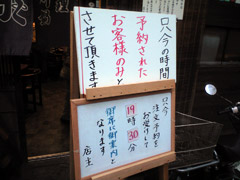 只今の時間
予約された
お客様のみと
させて頂きます
只今
注文予約を
お受けして
19時30分
御席に御案内と
なります
店主